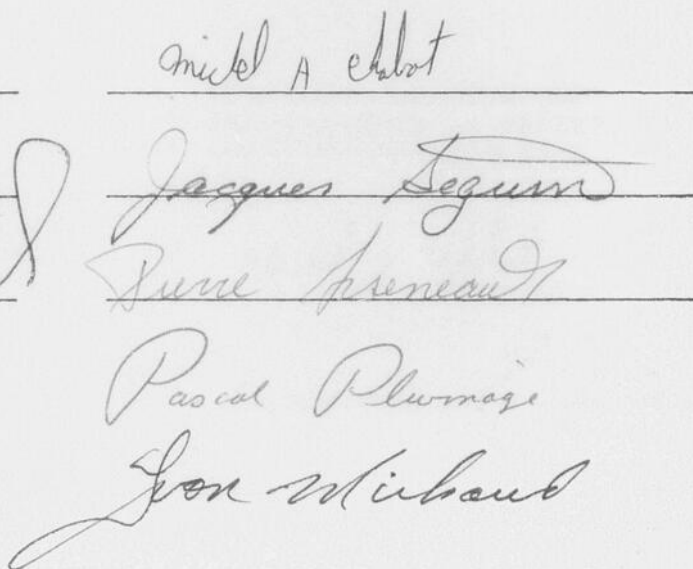 michel A chabot
Jacques Seguin
Pierre Arseneault
Pascal Plumage
Yvon Michaud